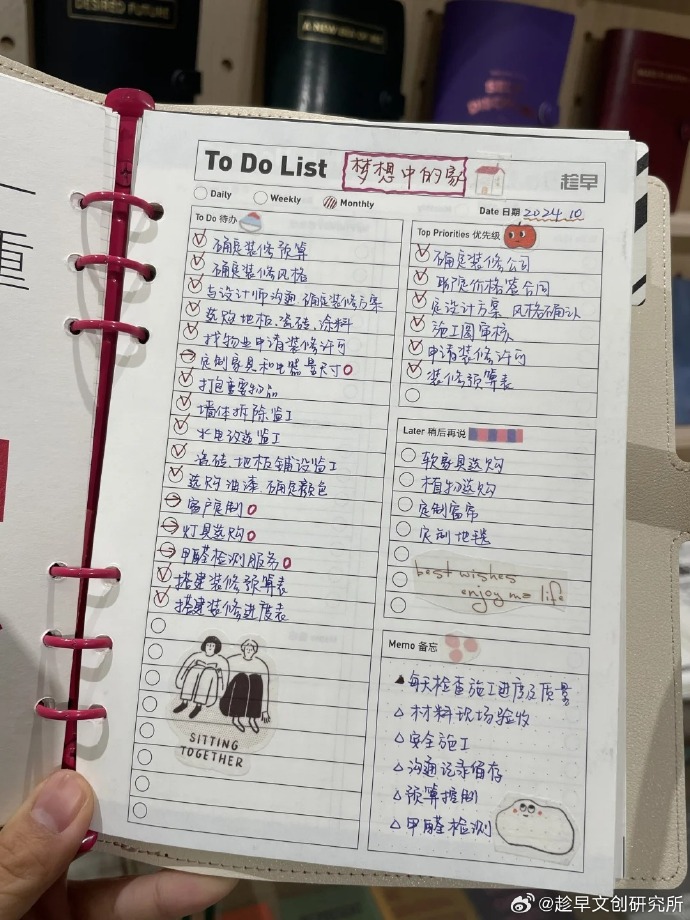 DESIRED FUTURE
重
To Do List 梦想中的家 趁早
Daily Weekly Monthly Date 日期 2024.10
To Do 待办
确定装修预算
确定装修风格
与设计师沟通、确定装修方案
选购地板、瓷砖、涂料
找物业申请装修许可
定制家具和电器量尺寸
打包重要物品
墙体拆除监工
水电改造监工
瓷砖、地板铺设监工
选购油漆、确定颜色
窗户定制
灯具选购
甲醛检测服务
搭建装修预算表
搭建装修进度表
SITTING
TOGETHER
Top Priorities 优先级
确定装修公司
价格签合同
定设计方案 风格确认
施工图审核
申请装修许可
装修预算表
Later 稍后再说
软家具选购
植物选购
定制窗帘
定制地毯
best wishes
enjoy me life
Memo 备忘
每天检查施工进度及质量
材料现场验收
安全施工
沟通记录留存
预算控制
甲醛检测
@趁早文创研究所